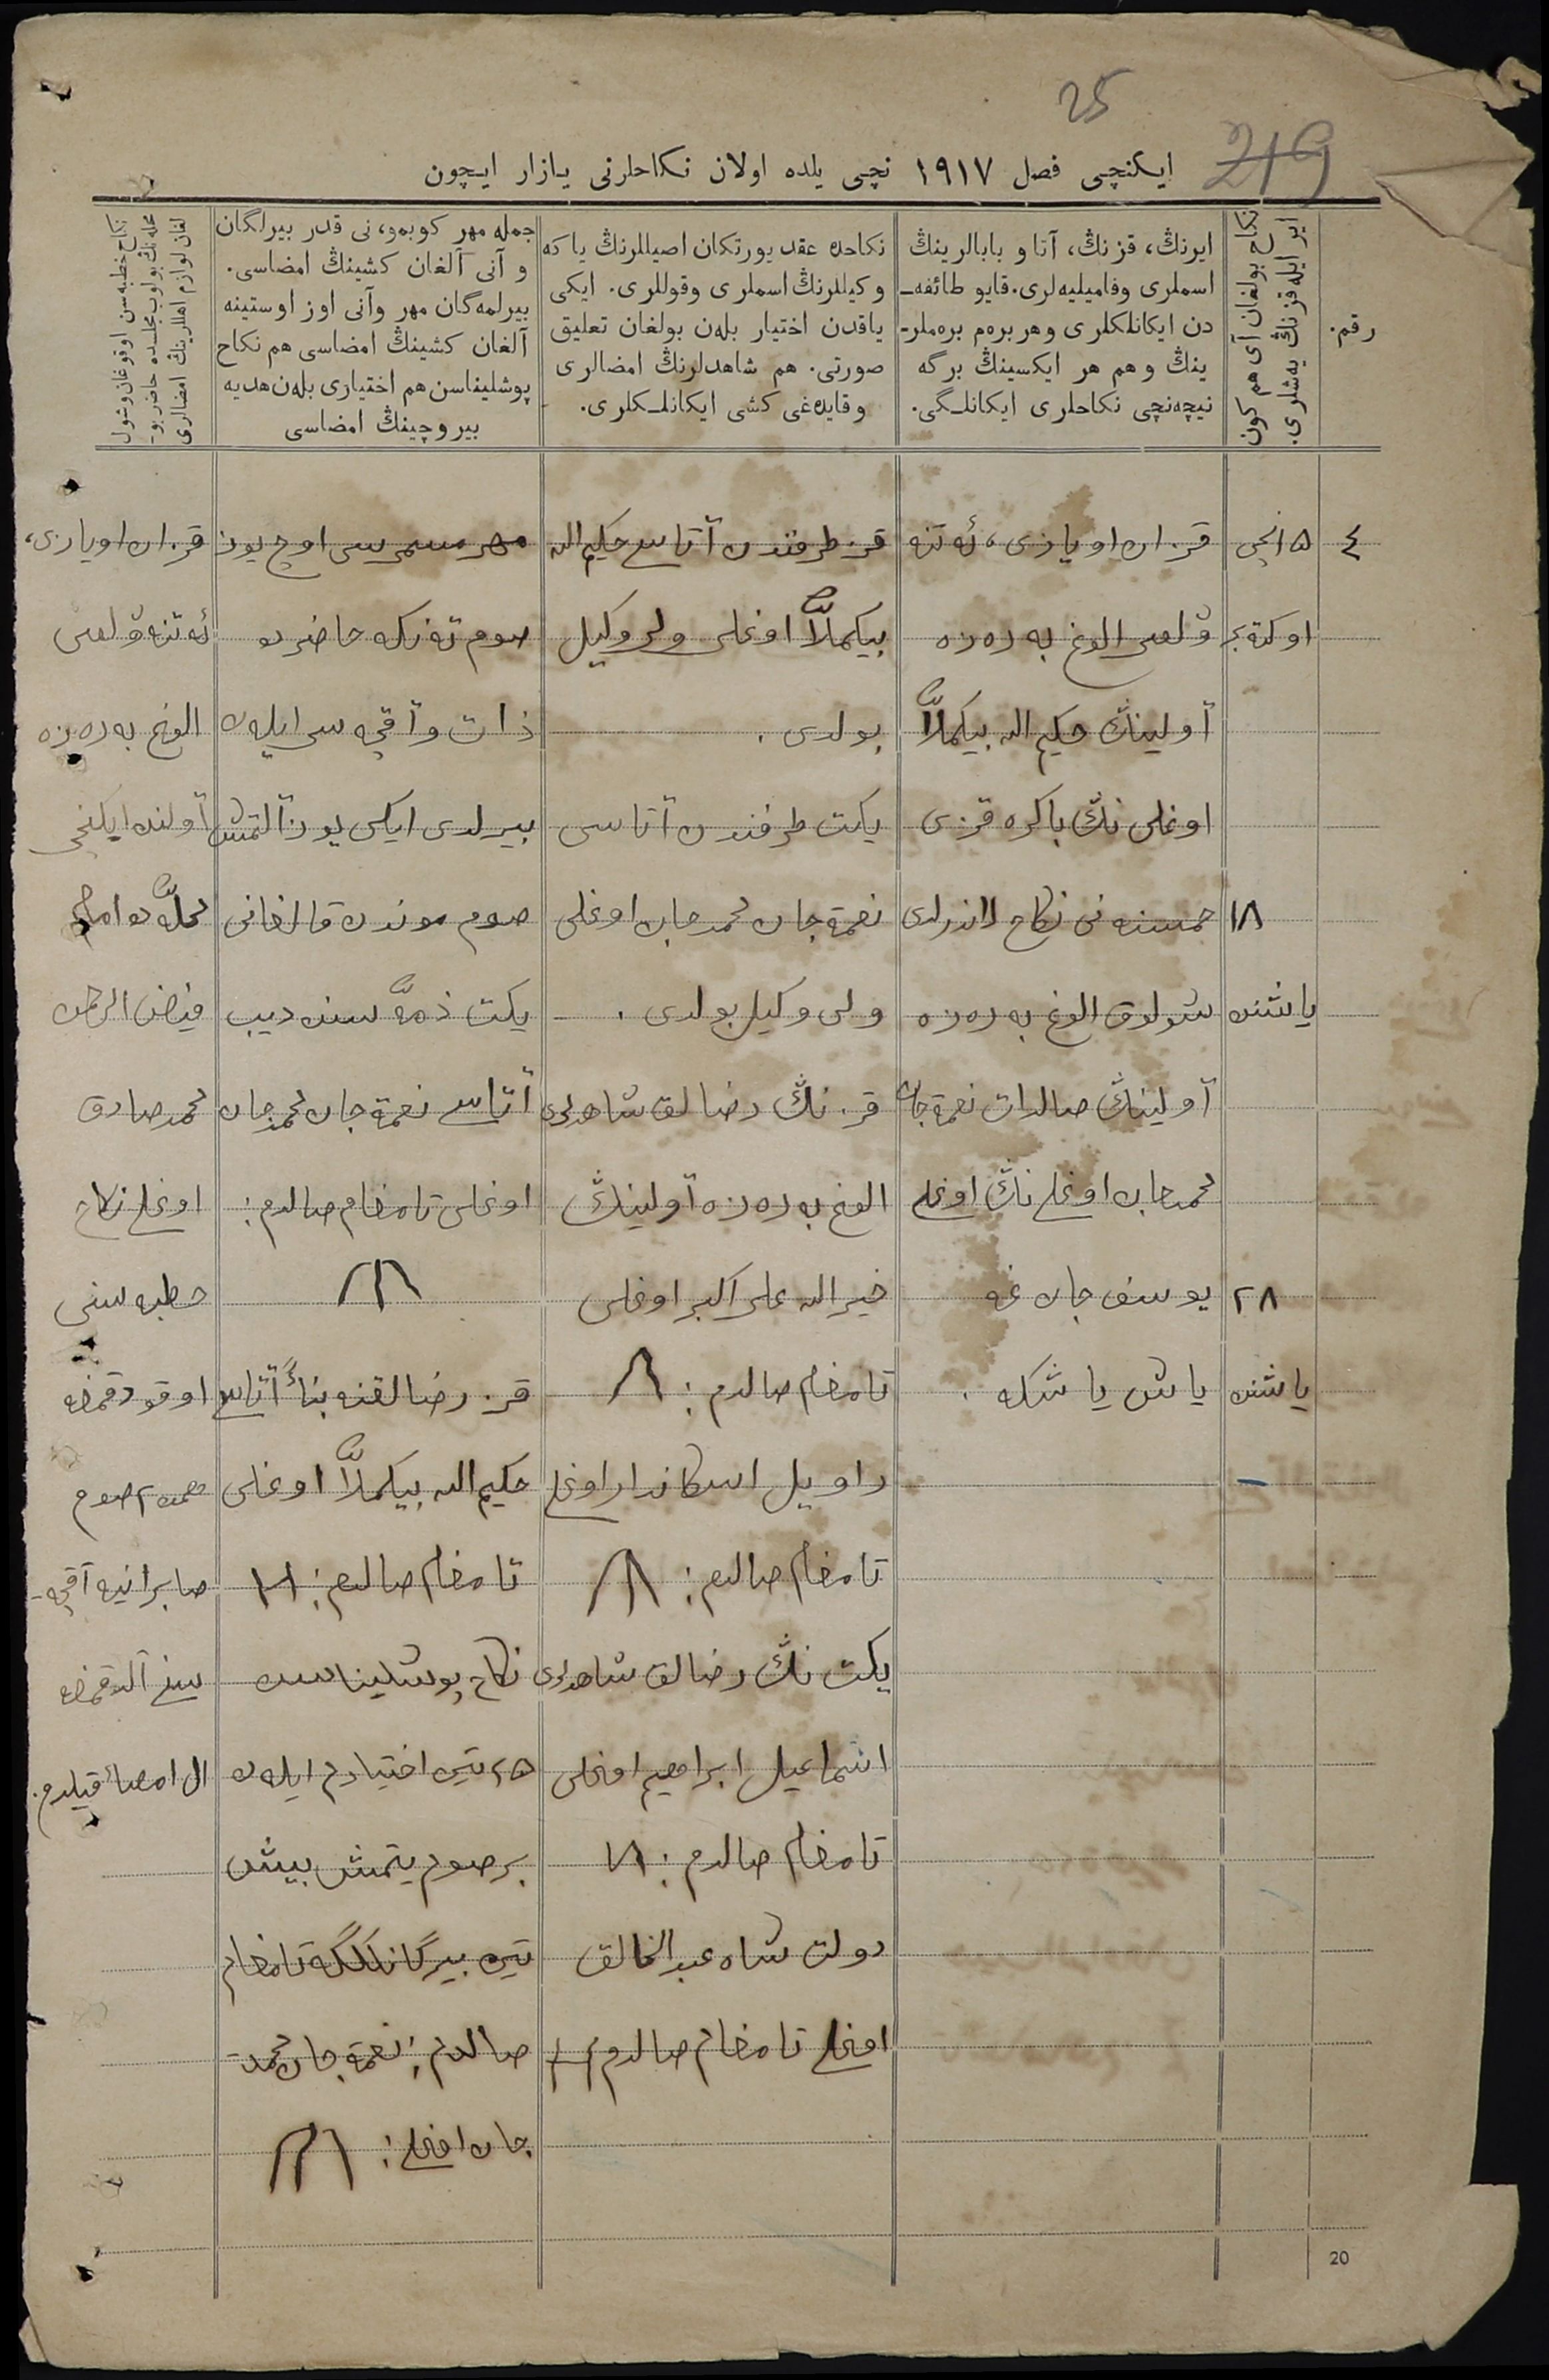 25
219
ایکنچی فصل ۱۹۱۷ نچی یلده اولان نکاحلرنی یازار ایچون
رقم.
نکاح بولغان آی هم کون
ایر ایله قزنڭ یه‌شلری.
ایرنڭ، قزنڭ، آتا و بابالرینڭ
اسملری وفامیلیه‌لری. قایو طائفه‌ـ
دن ایکانلکلری وهر بره‌م بره‌ملرـ
ینڭ و هم هر ایکسینڭ برگه
نیچه‌نچی نکاحلری ایکانلـگی.
نکاحده عقد یورتکان اصیللرنڭ یا که
وکیللرنڭ اسملری وقوللری. ایکی
یاقدن اختیار بله‌ن بولغان تعلیق
صورتی. هم شاهدلرنڭ امضالری
وقایده‌غی کشی ایکانلـکلری.
جمله مهر کوبمو، نی قدر بیرلگان
و آنی آلغان کشینڭ امضاسی.
بیرلمه‌گان مهر وآنی اوز اوستینه
آلغان کشینڭ امضاسی هم نکاح
پوشلیناسن هم اختیاری بله‌ن هدیه
بیروچینڭ امضاسی
نکاح خطبه‌سن اوقوغان وشول
محله‌نڭ بولوب مجلسده حاضر بوـ
لغان لوازم اهللرینڭ امضالری
٤
۱۵نچی
اوکتەبر
۱۸
یاشنده
۲۸
یاشنده
قزان اویازی، ئه‌تنه
ۋلصی الوغ به‌ره‌زه
آولینڭ حکیم الله بیکملّا
اوغلی نڭ باکره قزی
حمسنه نی نکاح لاندرلدی
شولوق الوغ به‌ره‌زه
آولینڭ صالدات نعمة جان
محمدجان اوغلی نڭ اوغلی
یوسف جان غه
یاش یاشکه.
قز طرفندن آتاسی حکیم الله
بیکملّا اوغلی ولی وکیل
بولدی.
یکت طرفندن آتاسی
نعمة جان محمدجان اوغلی
ولی وکیل بولدی.
قزنڭ رضالق شاهدلری
الوغ به‌ره‌زه آولینڭ
خیرالله علی اکبر اوغلی
تامغام صالدم:
راویل اسکاندار اوغلی
تامغام صالدم:
یکت نڭ رضالق شاهدلری
اسماعیل ابراهیم اوغلی
تامغام صالدم:
دولت شاه عبدالخالق
اوغلی تامغام صالدم
مهر مسمی سی اوچ یوز
صوم ته‌نکه حاضردو
ذات وآقچه سی ایله‌ن
بیرلدی ایکی یوز آلتمش
صوم موندن قالغانی
یکت ذمّه سنده دیب
آتاسی نعمة جان محمدجان
اوغلی تامغام صالدم:
قز رضالقنه بناءً آتاسی
حکیم الله بیکملّا اوغلی
تامغام صالدم:
نکاح پوشلیناسنه
۲۵ تین اختیارم ایله‌ن
بر صوم یتمش بیش
تین بیرگانلکگه تامغام
صالدم: نعمة جان محمد
جان اوغلی:
قزان اویازی،
ئه‌تنه ۋلصی
الوغ به‌ره‌زه
آولنده ایکنچی
محلّه‌ده امام
فیض الرحمن
محمد صادق
اوغلی نکاح
خطبه سنی
اوقودقمغه
صوم
آقچه‌ـ
سنی آلدقمغه
امضاء قیلدم.
20